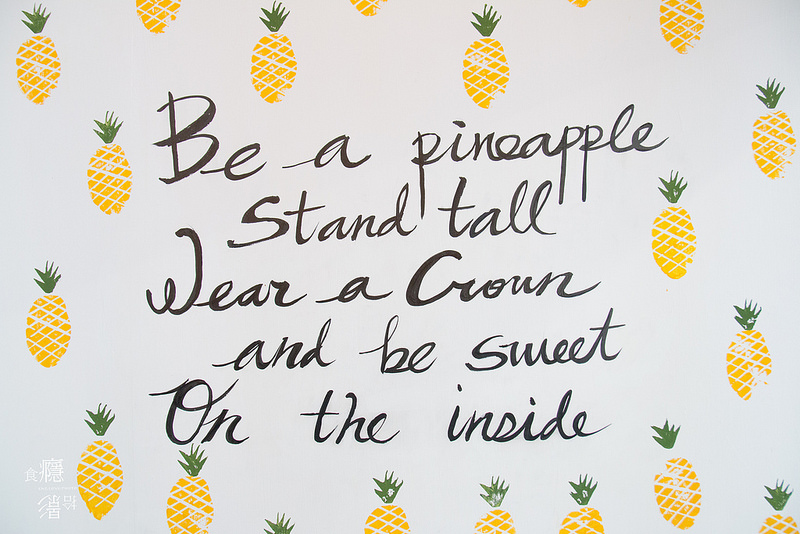 Be a pineapple
Stand tall
Wear a Crown
and be sweet
On the inside
食癮